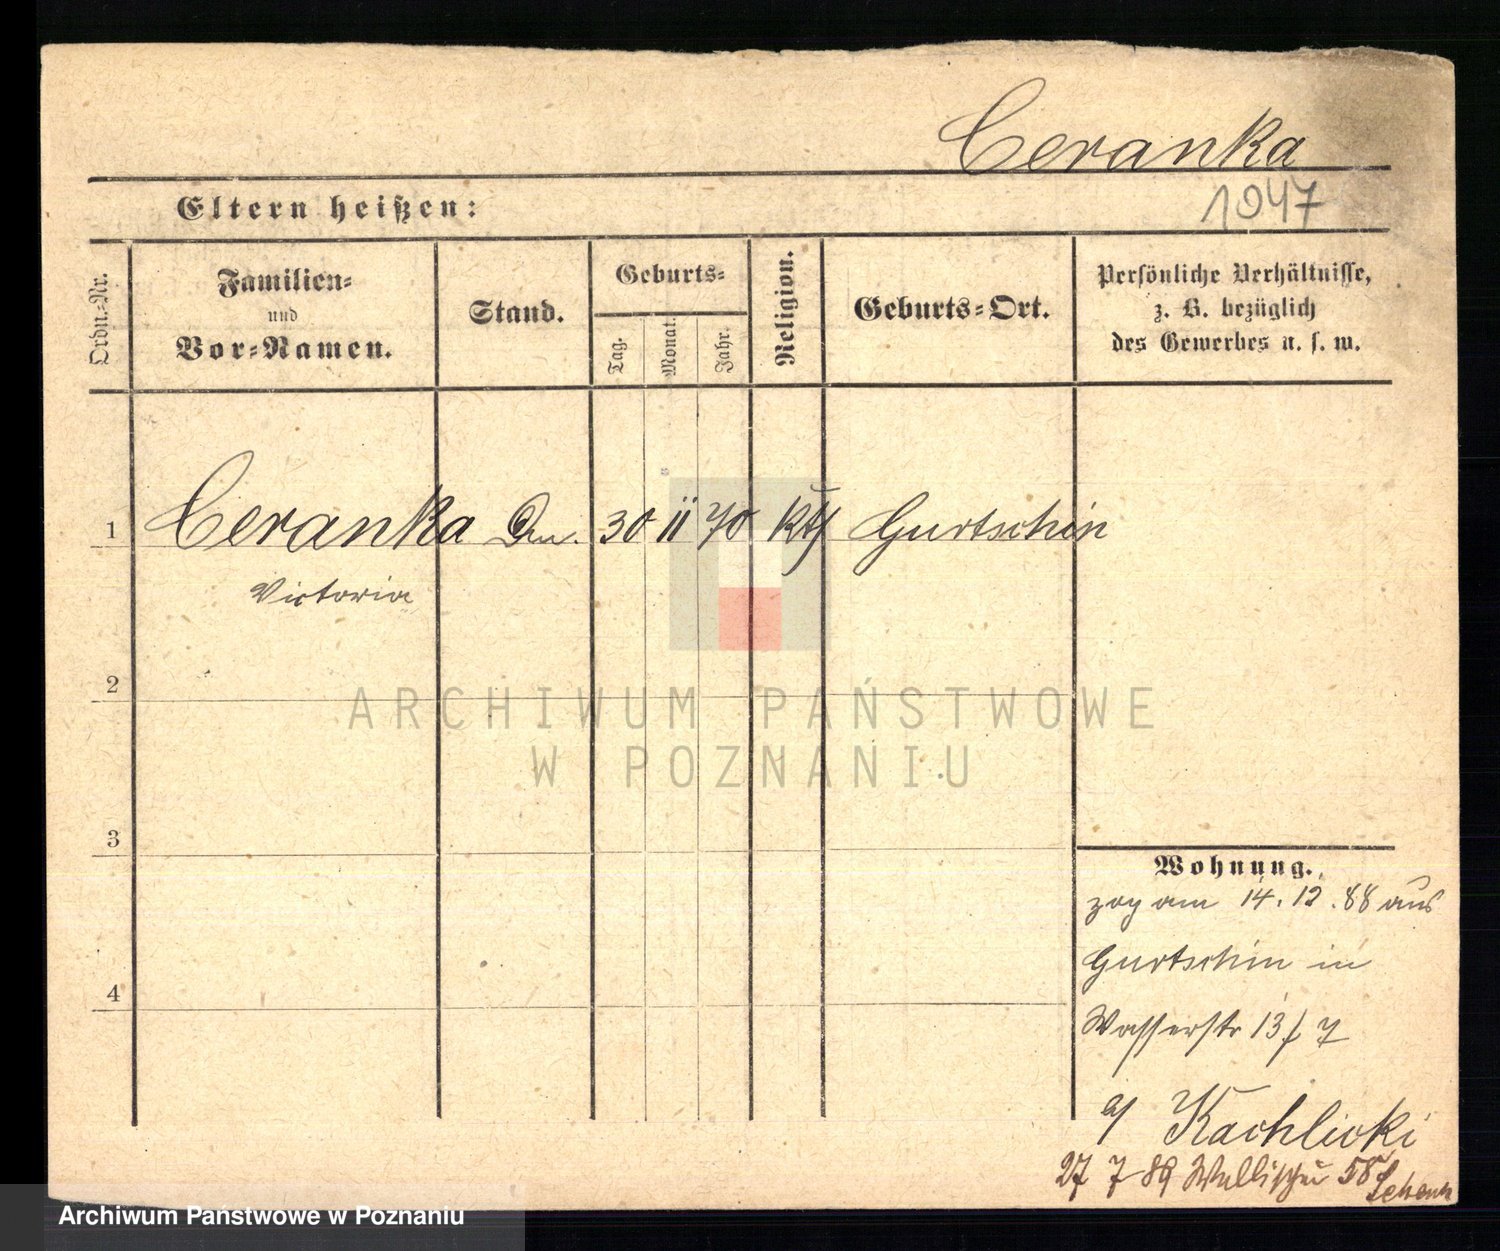 Ceranka
1047
Eltern heißen:
Ordn.-Nr.
Familien-
und
Vor-Namen.
Stand.
Geburts-
Tag.
Monat.
Jahr.
Religion.
Geburts-Ort.
Persönliche Verhältnisse,
z. B. bezüglich
des Gewerbes u. s. w.
1 Ceranka 30 11 70 kth Gurtschin
Victoria
2
3
4
Wohnung.
zog am 14.12.88 aus
Gurtschin in
Wasserstr 13/7
Kachlicki
27 7 89 Wallischei 58
ARCHIWUM PAŃSTWOWE
W POZNANIU
Archiwum Państwowe w Poznaniu